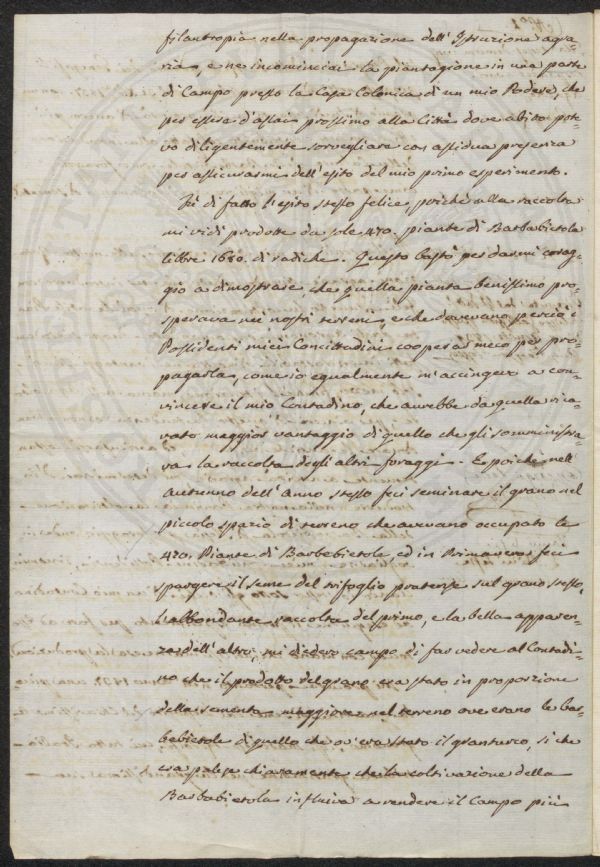 filantropia nella propagazione dell'Istruzione agra-
ria, e ne incominciai la piantagione in una parte
di Campo presso la Casa Colonica di un mio Podere, che
per essere d'assai prossimo alla Città dove abito pote-
vo diligentemente sorvegliare con assidua presenza
per assicurarmi dell'esito del mio primo esperimento.
Fù di fatto l'esito stesso felice, poichè alla raccolta
mi vidi prodotte da sole 470. piante di Barbabietola
libbre 1680. di radiche. Questo bastò per darmi corag-
gio a dimostrare, che quella pianta benissimo pro-
sperava nei nostri terreni, e che dovevano perciò i
Possidenti miei Concittadini cooperar meco per pro-
pagarla, come io egualmente m'accingevo a con-
vincere il mio Contadino, che avrebbe da quella rica-
vato maggior vantaggio di quello che gli somministra-
va la raccolta degli altri foraggi. E poichè nell'
autunno dell'Anno stesso feci seminare il grano nel
piccolo spazio di terreno che avevano occupato le
470. Piante di Barbebietole, ed in Primavera feci
spargere il seme del trifoglio pratense sul grano stesso,
l'abbondante raccolta del primo, e la bella apparen-
za dell'altro, mi diedero campo di far vedere al Contadi-
no che il prodotto del grano era stato in proporzione
della sementa maggiore nel terreno ove erano le bar-
bebietole di quello che ov'era stato il granturco, si che
era palese chiaramente che la coltivazione della
Barbabietola influiva a rendere il Campo più